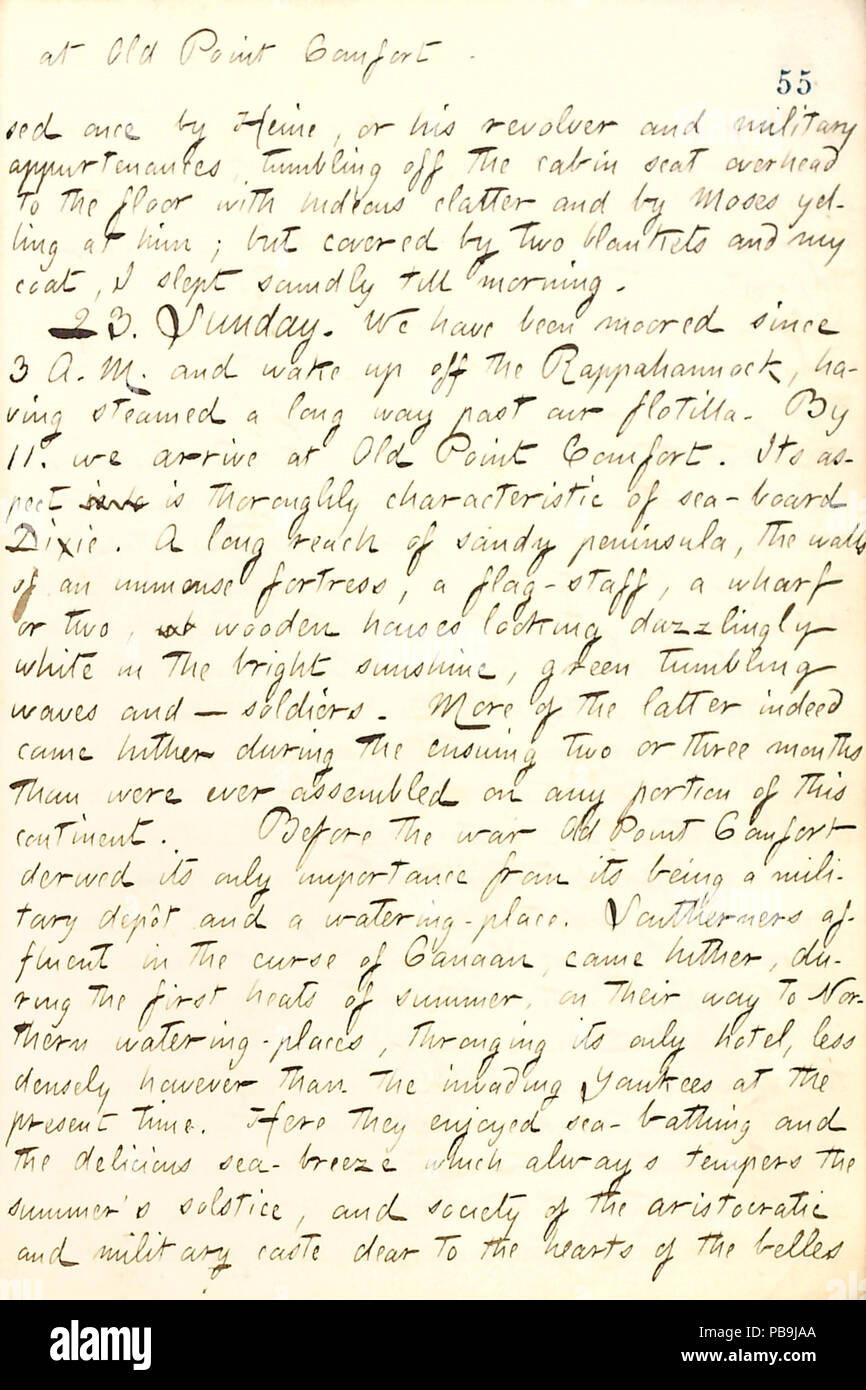 at Old Point Comfort.
55
sed once by Heine, or his revolver and military
appurtenances, tumbling off the cabin seat overhead
to the floor with hideous clatter and by Moses yel-
ling at him; but covered by two blankets and my
coat, I slept soundly till morning.
23. Sunday. We have been moored since
3 A.M. and wake up off the Rappahannock, ha-
ving steamed a long way past our flotilla. By
11. we arrive at Old Point Comfort. Its as-
pect is thoroughly characteristic of sea-board
Dixie. A long reach of sandy peninsula, the walls
of an immense fortress, a flag-staff, a wharf
or two, wooden houses looking dazzlingly
white in the bright sunshine, green tumbling
waves and — soldiers. More of the latter indeed
came hither during the ensuing two or three months
than were ever assembled on any portion of this
continent. Before the war Old Point Comfort
derived its only importance from its being a mili-
tary depôt and a watering-place. Southerners af-
fluent in the curse of Canaan, came hither, du-
ring the first heats of summer, on their way to Nor-
thern watering-places, thronging its only hotel, less
densely however than the invading Yankees at the
present time. Here they enjoyed sea-bathing and
the delicious sea-breeze which always tempers the
summer's solstice, and society of the aristocratic
and military caste dear to the hearts of the belles
alamy
Image ID: PB9JAA
www.alamy.com